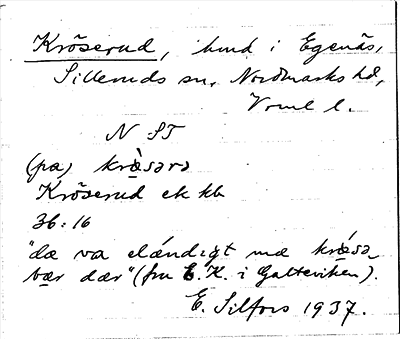 Kröserud, hmd i Egenäs,
Silleruds sn, Nordmarks hd,
Vrml l.
N ST
(pa) kræsərə
Kröserud ek kb
36:16
"dæ va eländigt mæ kræsə_
bær dær" (fru E. K. i Galteviken).
E. Silfors 1937.